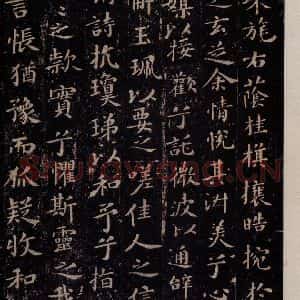 旄右蔭桂旗攘皓捥於
之玄芝余情悅其淑美兮心
媒以接歡兮託微波以通辭
解玉珮以要之嗟佳人之信
明詩抗瓊珶以和予兮指
之款實兮懼斯靈之我
言悵猶豫而狐疑收和
Shufawang.CN